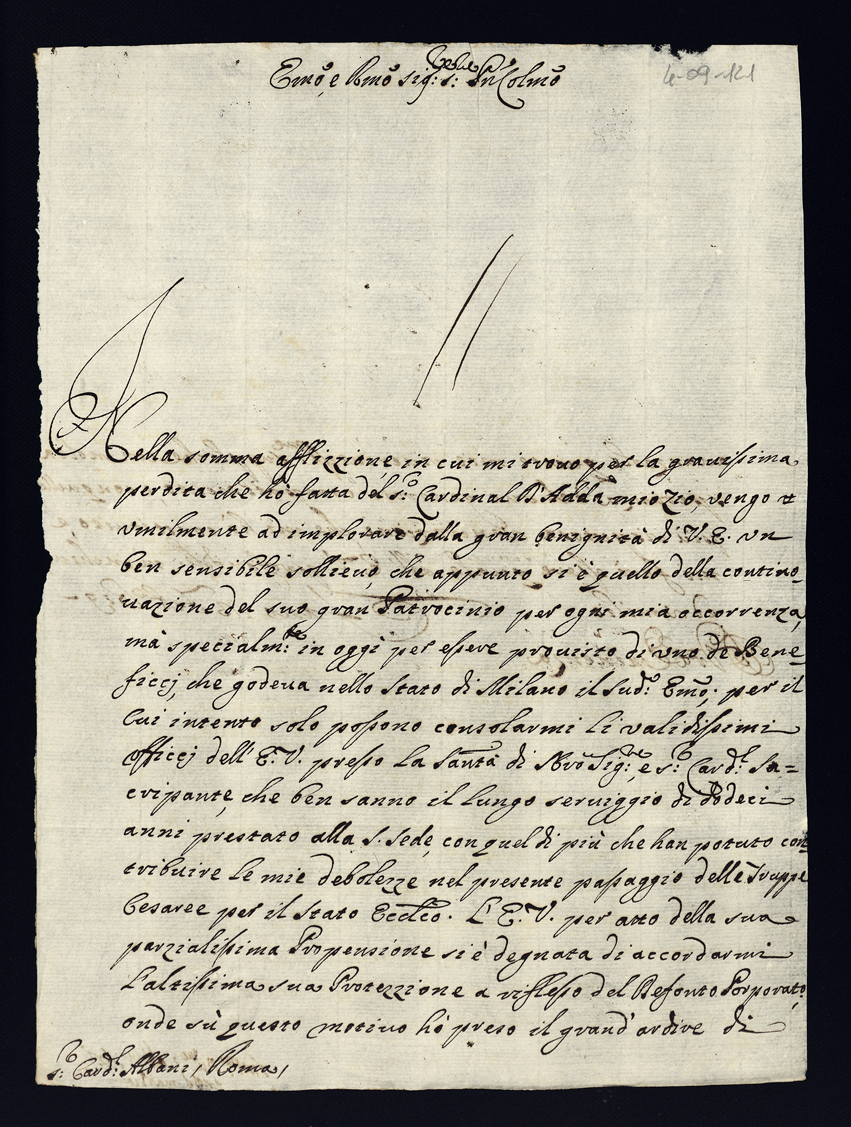 Emo, e Rmo Sig: s: Pn Colmo
4-09-121
Nella somma afflizzione in cui mi trovo per la gravissima
perdita che hò fatta del s:o Cardinal D'Adda mio Zio, vengo
umilmente ad implorare dalla gran benignità di V. E. un
ben sensibile sollievo, che appunto si è quello della contino-
uazione del suo gran Patrocinio per ogni mia occorrenza,
mà specialm:te in oggi per essere prouisto di uno de Bene-
ficcj, che godeua nello Stato di Milano il sud:o Emo; per il
cui intento solo possono consolarmi li validissimi
officcj dell'E. V. presso la Santà di Nro Sig:re, e s:r Card:l Sa=
cripante, che ben sanno il lungo seruiggio di dodeci
anni prestato alla S. Sede, con quel di più che han potuto con
tribuire le mie debolezze nel presente passaggio delle Truppe
Cesaree per il Stato Eccl:co. L'E. V. per atto della sua
parzialissima Propensione si è degnata di accordarmi
l'altissima sua Protezzione a riflesso del Defonto Porporato,
onde sù questo motivo hò preso il grand'ardire di
s:r Card:l Albani / Roma /